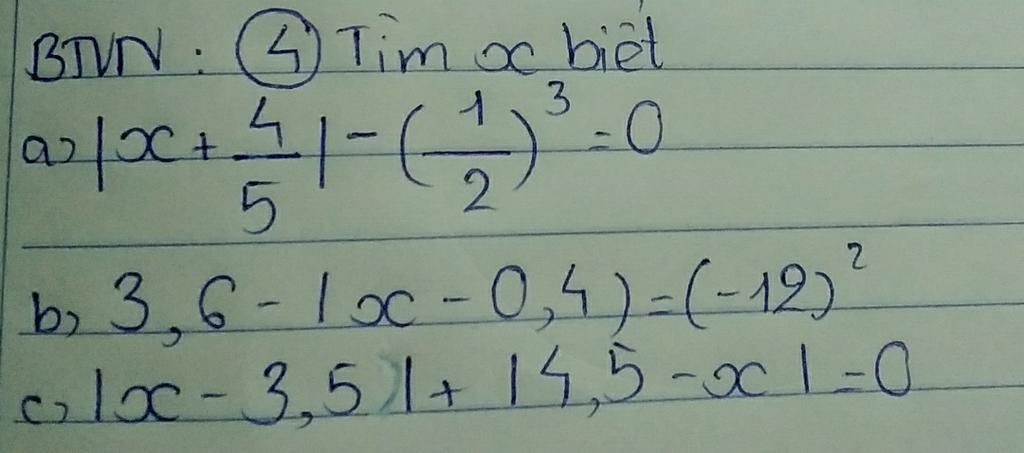 BTVN : ④ Tìm x biết
a) |x + 4/5| - (1/2)³ = 0
b, 3,6 - |x - 0,4) = (-12)²
c) |x - 3,5)| + |4,5 - x| = 0